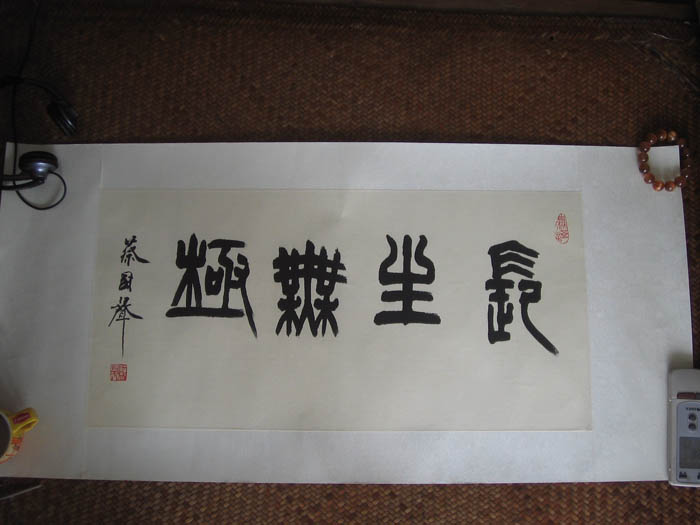 長生無極
蔡國聲